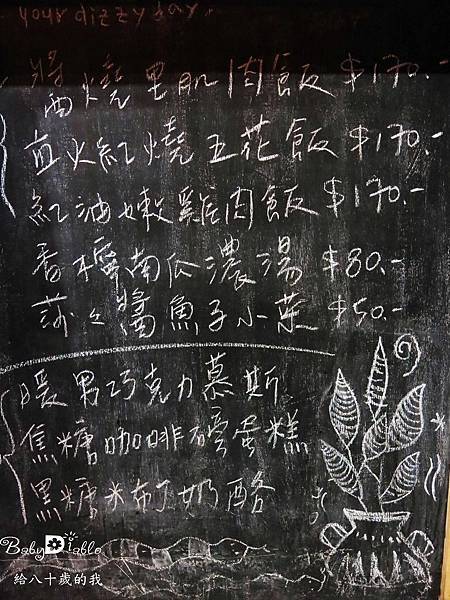 your dizzy day.
醬燒里肌肉飯 $170.-
血火紅燒五花飯 $170.-
紅油嫩雞肉飯 $170.-
香檸南瓜濃湯 $80.-
莎莎醬魚子小菜 $50.-
暖男巧克力慕斯
焦糖咖啡磅蛋糕
黑糖米布丁奶酪
Baby Diablo
給八十歲的我